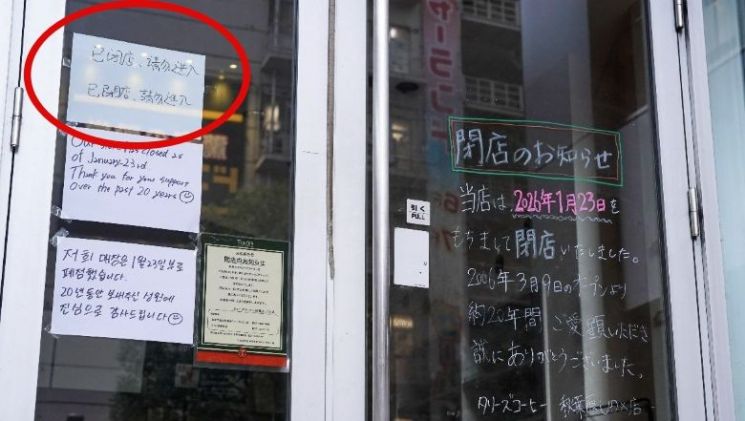 已闭店、请勿进入
已閉店、請勿進入
Our store has closed as
of January 23rd
Thank you for your support
over the past 20 years
저희 매장은 1월 23일 부로
폐점했습니다.
20년동안 보내주신 성원에
진심으로 감사드립니다
引く
PULL
閉店のお知らせ
当店は、2026年1月23日を
もちまして閉店いたしました。
2006年3月9日のオープンより
約20年間 ご愛顧いただき
誠にありがとうございました。
タリーズコーヒー 秋葉原
店